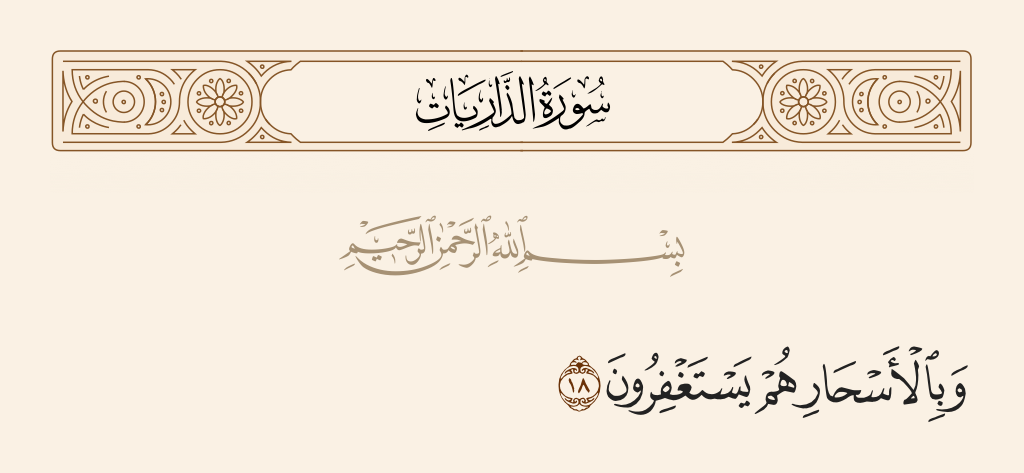 سُورَةُ الذَّارِيَاتِ
بِسْمِ ٱللَّهِ ٱلرَّحْمَٰنِ ٱلرَّحِيمِ
وَبِٱلْأَسْحَارِ هُمْ يَسْتَغْفِرُونَ ١٨